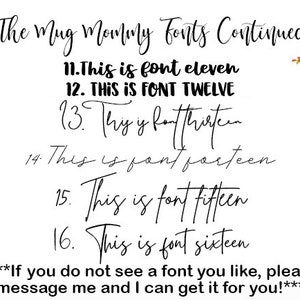 The Mug Mommy Fonts Continued
11.This is font eleven
12. THIS IS FONT TWELVE
13. This is font thirteen
14. This is font forteen
15. This is font fifteen
16. This is font sixteen
**If you do not see a font you like, plea
message me and I can get it for you!***